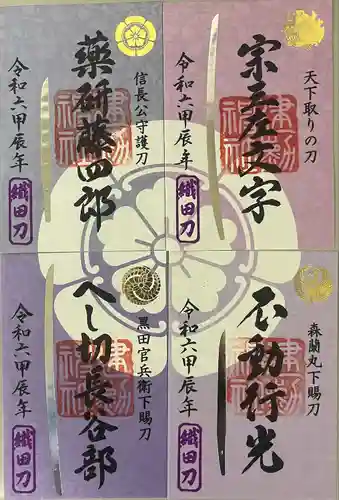 天下取りの刀
宗三左文字
令和六甲辰年
織田刀
建勲神社
信長公守護刀
薬研藤四郎
令和六甲辰年
織田刀
建勲神社
森蘭丸下賜刀
不動行光
令和六甲辰年
織田刀
建勲神社
黒田官兵衛下賜刀
へし切長谷部
令和六甲辰年
織田刀
建勲神社